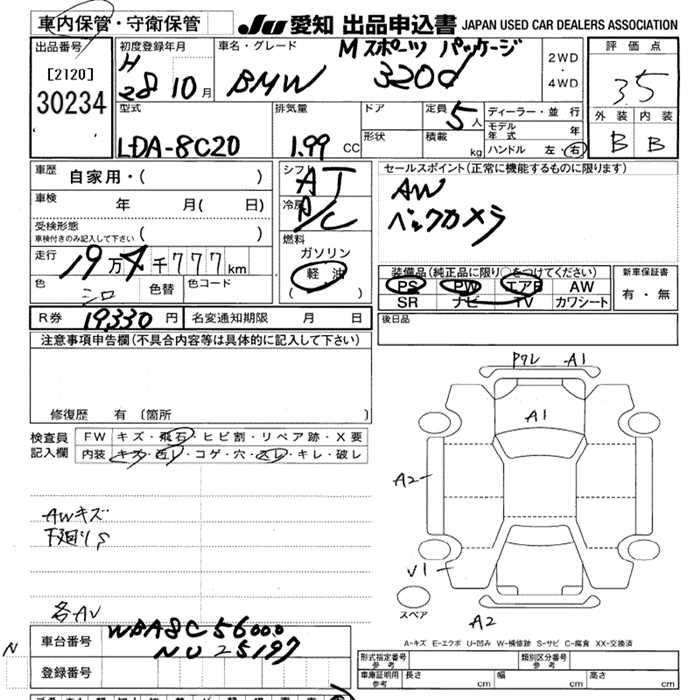 車内保管・守衛保管
JU 愛知 出品申込書 JAPAN USED CAR DEALERS ASSOCIATION
出品番号
[2120]
30234
初度登録年月
H
28 10月
車名・グレード
Mスポーツ パッケージ
BMW 320d
2WD
・
4WD
評価点
3.5
外装 内装
B B
型式
LDA-8C20
排気量
1.99 CC
ドア
形状
定員
5人
積載 kg
ディーラー・並行
モデル年式 年
ハンドル 左・右
車歴
自家用・( )
車検
年 月( 日)
受検形態
車検付きのみ記入して下さい ( )
走行
19万4千777km
色
シロ
色替
色コード
シフト
AT
冷房
A/C
燃料
ガソリン
軽油
( )
セールスポイント(正常に機能するものに限ります)
AW
バックカメラ
装備品(純正品に限り○をつけてください)
PS PW エアB AW
SR ナビ TV カワシート
新車保証書
有・無
R券 19330円 名変通知期限 月 日
後日品
注意事項申告欄(不具合内容等は具体的に記入して下さい)
修復歴 有 〔箇所 〕
検査員
記入欄
FW キズ・飛石・ヒビ割・リペア跡・X要
内装 キズ・汚レ・コゲ・穴・スレ・キレ・破レ
AWキズ
下廻りS
各AV
ワレ A1
A1
A2
V1
スペア
A2
A-キズ E-エクボ U-凹み W-補修跡 S-サビ C-腐食 XX-交換済
N
車台番号
WBA8C56000
NU25197
登録番号
形式指定番号
参考
類別区分番号
参考
車庫証明用
参考
長さ cm 幅 cm 高さ cm